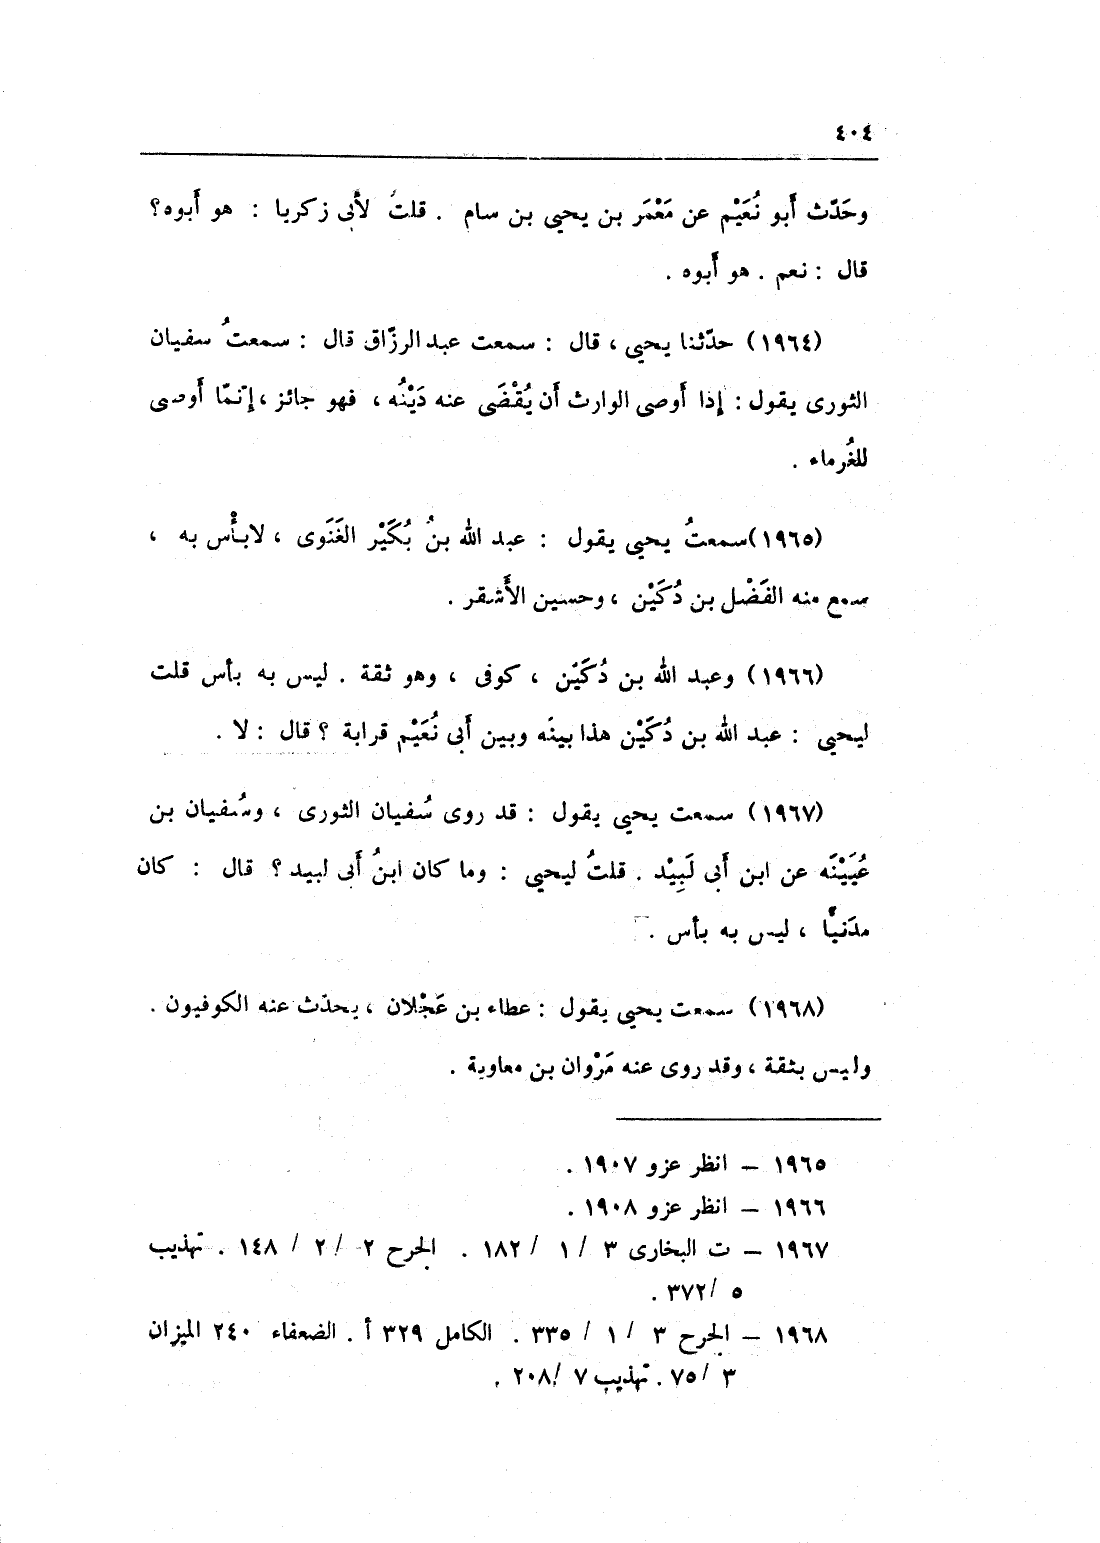 ٤٠٤
وحَدّث أَبو نُعَيْم عن مَعْمَر بن يحيى بن سام . قلتُ لأَبى زكريا : هو أَبوه؟
قال : نعم . هو أَبوه .
(١٩٦٤) حدّثنا يحيى ، قال : سمعت عبد الرزّاق قال : سمعتُ سفيان
الثورى يقول : إذا أَوصى الوارث أَن يُقْضَى عنه دَيْنُه ، فهو جائز ، إنّمّا أَوصى
للغُرماء .
(١٩٦٥)سمعتُ يحيى يقول : عبد الله بنُ بُكَيْر الغَنَوى ، لابأْس به ،
سمع منه الفَضْل بن دُكَيْن ، وحسين الأَشقر .
(١٩٦٦) وعبد الله بن دُكَيْن ، كوفى ، وهو ثقة . ليس به بأس قلت
ليحيى : عبد الله بن دُكَيْن هذا بينَه وبين أَبى نُعَيْم قرابة ؟ قال : لا .
(١٩٦٧) سمعت يحيى يقول : قد روى سُفيان الثورى ، وسُفيان بن
عُيَيْنَه عن ابن أَبى لَبِيْد . قلتُ ليحيى : وما كان ابنُ أَبى لبيد ؟ قال : كان
مدَنيًّا ، ليس به بأس .
(١٩٦٨) سمعت يحيى يقول : عطاء بن عَجْلان ، يحدّث عنه الكوفيون .
وليس بثقة ، وقد روى عنه مَرْوان بن معاوية .
١٩٦٥ – انظر عزو ١٩٠٧ .
١٩٦٦ – انظر عزو ١٩٠٨ .
١٩٦٧ – ت البخارى ٣ / ١ / ١٨٢ . الجرح ٢ / ٢ / ١٤٨ . تهذيب
٥ / ٣٧٢ .
١٩٦٨ – الجرح ٣ / ١ / ٣٣٥ . الكامل ٣٢٩ أ . الضعفاء ٢٤٠ الميزان
٣ / ٧٥ . تهذيب ٧ / ٢٠٨ .